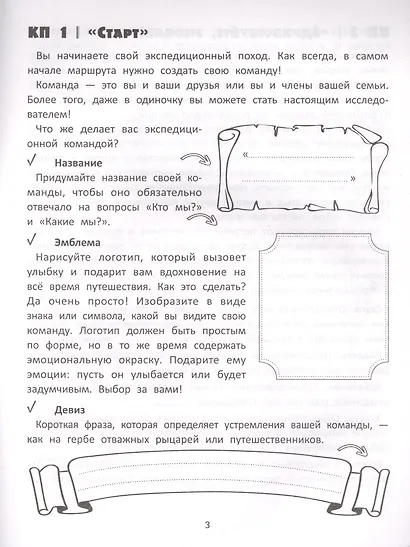 КП 1 | «Старт»
Вы начинаете свой экспедиционный поход. Как всегда, в самом
начале маршрута нужно создать свою команду!
Команда — это вы и ваши друзья или вы и члены вашей семьи.
Более того, даже в одиночку вы можете стать настоящим исследо-
вателем!
Что же делает вас экспедици-
онной командой?
✓ Название
Придумайте название своей ко-
манды, чтобы оно обязательно
отвечало на вопросы «Кто мы?»
и «Какие мы?».
«
»
✓ Эмблема
Нарисуйте логотип, который вызовет
улыбку и подарит вам вдохновение на
всё время путешествия. Как это сделать?
Да очень просто! Изобразите в виде
знака или символа, какой вы видите свою
команду. Логотип должен быть простым
по форме, но в то же время содержать
эмоциональную окраску. Подарите ему
эмоции: пусть он улыбается или будет
задумчивым. Выбор за вами!
✓ Девиз
Короткая фраза, которая определяет устремления вашей команды, —
как на гербе отважных рыцарей или путешественников.
3